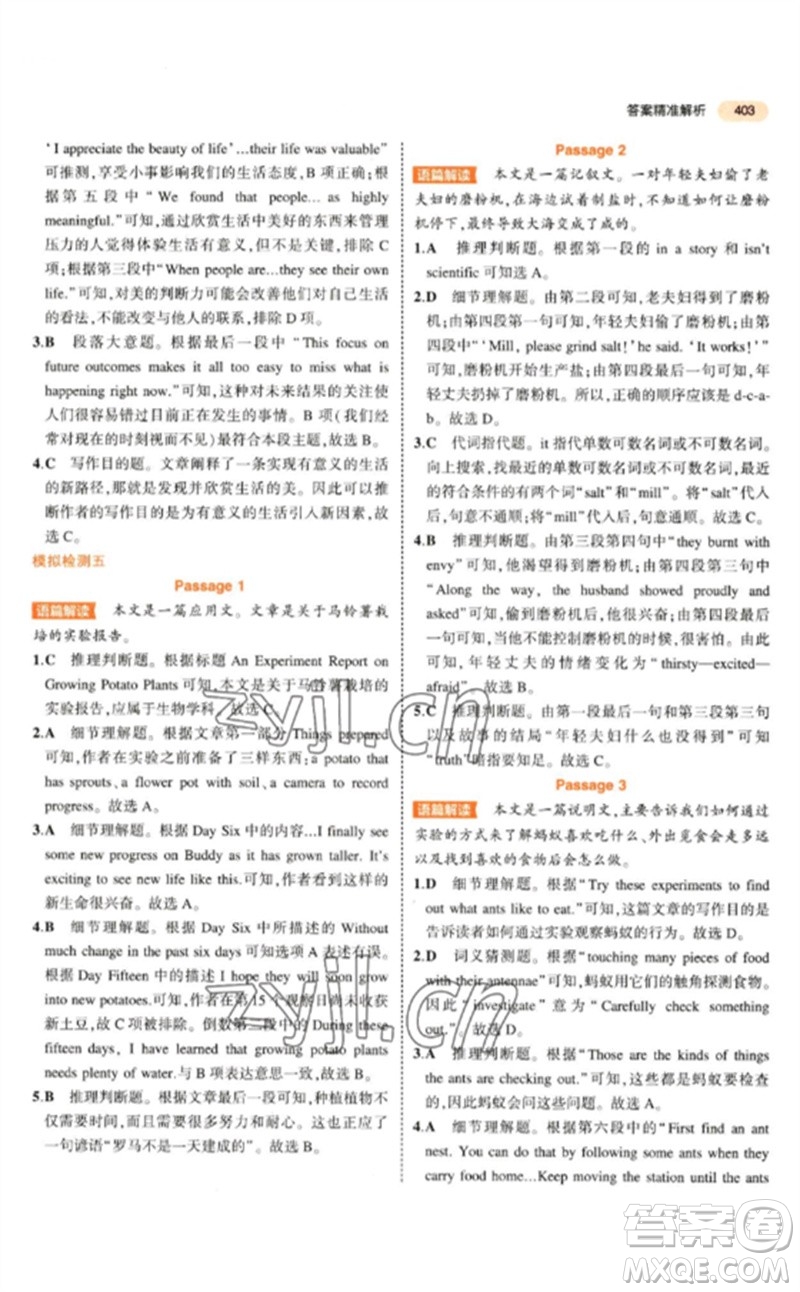 答案精准解析 403
‘I appreciate the beauty of life’...their life was valuable”
可推测,享受小事影响了他们的生活态度,B 项正确;根
据第五段中“We found that people... as highly
meaningful.”可知,通过欣赏生活中美好的东西来管理
压力的人觉得生活有意义,但不是关键,排除 C
项;根据第三段中“When people are...they see their own
life.”可知,对美的判断力可能会改善他们对自己生活
的看法,不能改变与他人的联系,排除 D 项。
3.B 段落大意题。根据最后一段中“This focus on
future outcomes makes it all too easy to miss what is
happening right now.”可知,这种对未来结果的关注使
人们很容易错过目前正在发生的事情。B 项(我们经
常对存在的时刻视而不见)最符合本段主题,故选 B。
4.C 写作目的题。文章阐释了一条实现有意义的生活
的新路径,那就是发现并欣赏生活的美。因此可以推
断作者的写作目的是为有意义的生活引入新因素,故
选 C。
模拟检测五
Passage 1
语篇解读 本文是一篇应用文。文章是关于马铃薯栽
培的实验报告。
1.C 推理判断题。根据标题 An Experiment Report on
Growing Potato Plants 可知,本文是关于马铃薯栽培的
实验报告,应属于生物学科。故选 C。
2.A 细节理解题。根据文章第一部分 Things prepared
可知,作者在实验之前准备了三样东西: a potato that
has sprouts, a flower pot with soil, a camera to record
progress。故选 A。
3.A 细节理解题。根据 Day Six 中的内容...I finally see
some new progress on Buddy as it has grown taller. It's
exciting to see new life like this.可知,作者看到这样的
新生命很兴奋。故选 A。
4.B 细节理解题。根据 Day Six 中所描述的 Without
much change in the past six days 可知选项 A 表述有误。
根据 Day Fifteen 中的描述 I hope they will grow into
new potatoes.可知,在第 15 个观察日尚未收获
新土豆,故 C 项被排除。倒数第二段中的 During these
fifteen days, I have learned that growing potato plants
needs plenty of water.与 B 项表达意思一致。故选 B。
5.B 推理判断题。根据最后一段可知,种植植物不
仅需要时间,而且需要很多努力和耐心。这也正应了
一句谚语“罗马不是一天建成的”。故选 B。
Passage 2
语篇解读 本文是一篇记叙文。一对年轻夫妇偷了老
夫妇的磨粉机,在海边试着制盐时,因为不会让磨粉
机停下,最终导致大海变成了咸的。
1.A 推理判断题。根据第一段的 in a story 和 isn't
scientific 可知选 A。
2.D 细节理解题。由第二段可知,老夫妇得到了磨粉
机;由第四段第一句可知,年轻夫妇偷了磨粉机;由第
四段中“‘Mill, please grind salt!’he said. ‘It works!’”可
知,磨粉机开始生产盐;由第四段最后一句可知,年
轻丈夫扔掉了磨粉机。所以,正确的顺序应该是 d-c-a-
b。故选 D。
3.C 代词指代题。it 指代单数可数名词或不可数名词。
向上搜索,找最近的单数可数名词或不可数名词,最近
的符合条件的有两个词“salt”和“mill”。“salt”代入
后,句意不通顺;“mill”代入后,句意通顺。故选 C。
4.B 推理判断题。由第三段第四句中“they burnt with
envy”可知,他渴望得到磨粉机;由第四段第三句中
“Along the way, the husband showed proudly and
asked”可知,偷到磨粉机后,他很兴奋;由第四段第
七句可知,当他不能控制磨粉机的时候,他很害怕。
可见,年轻丈夫的情绪变化为“thirsty—excited—
afraid”。故选 B。
5.C 推理判断题。由第一段最后一句和第三段第三句
以及故事的结局“年轻夫妇什么也没得到”可知
“truth”暗指要知足。故选 C。
Passage 3
语篇解读 本文是一篇说明文,主要告诉我们如何通过
实验的方式来了解蚂蚁喜欢吃什么、外出觅食会走多远
以及找到喜欢的食物后会怎么做。
1.D 细节理解题。根据“Try these experiments to find
out what ants like to eat.”可知,这篇文章的写作目的是
告诉读者如何通过实验观察蚂蚁的行为。故选 D。
2.D 词义猜测题。根据“touching many pieces of food
with their antennae”可知,蚂蚁用它们的触角探测食物。
因此“investigate”意为“Carefully check something
out.”。故选 D。
3.A 推理判断题。根据“Those are the kinds of things
the ants are checking out.”可知,这些都是蚂蚁要检查
的,因此蚂蚁会对它们感兴趣。故选 A。
4.A 细节理解题。根据第六段中的“First find an ant
nest. You can do that by following some ants when they
carry food home...Keep moving the station until the ants
zyjl.cn
zyjl.cn
答案卷
MXQE.COM